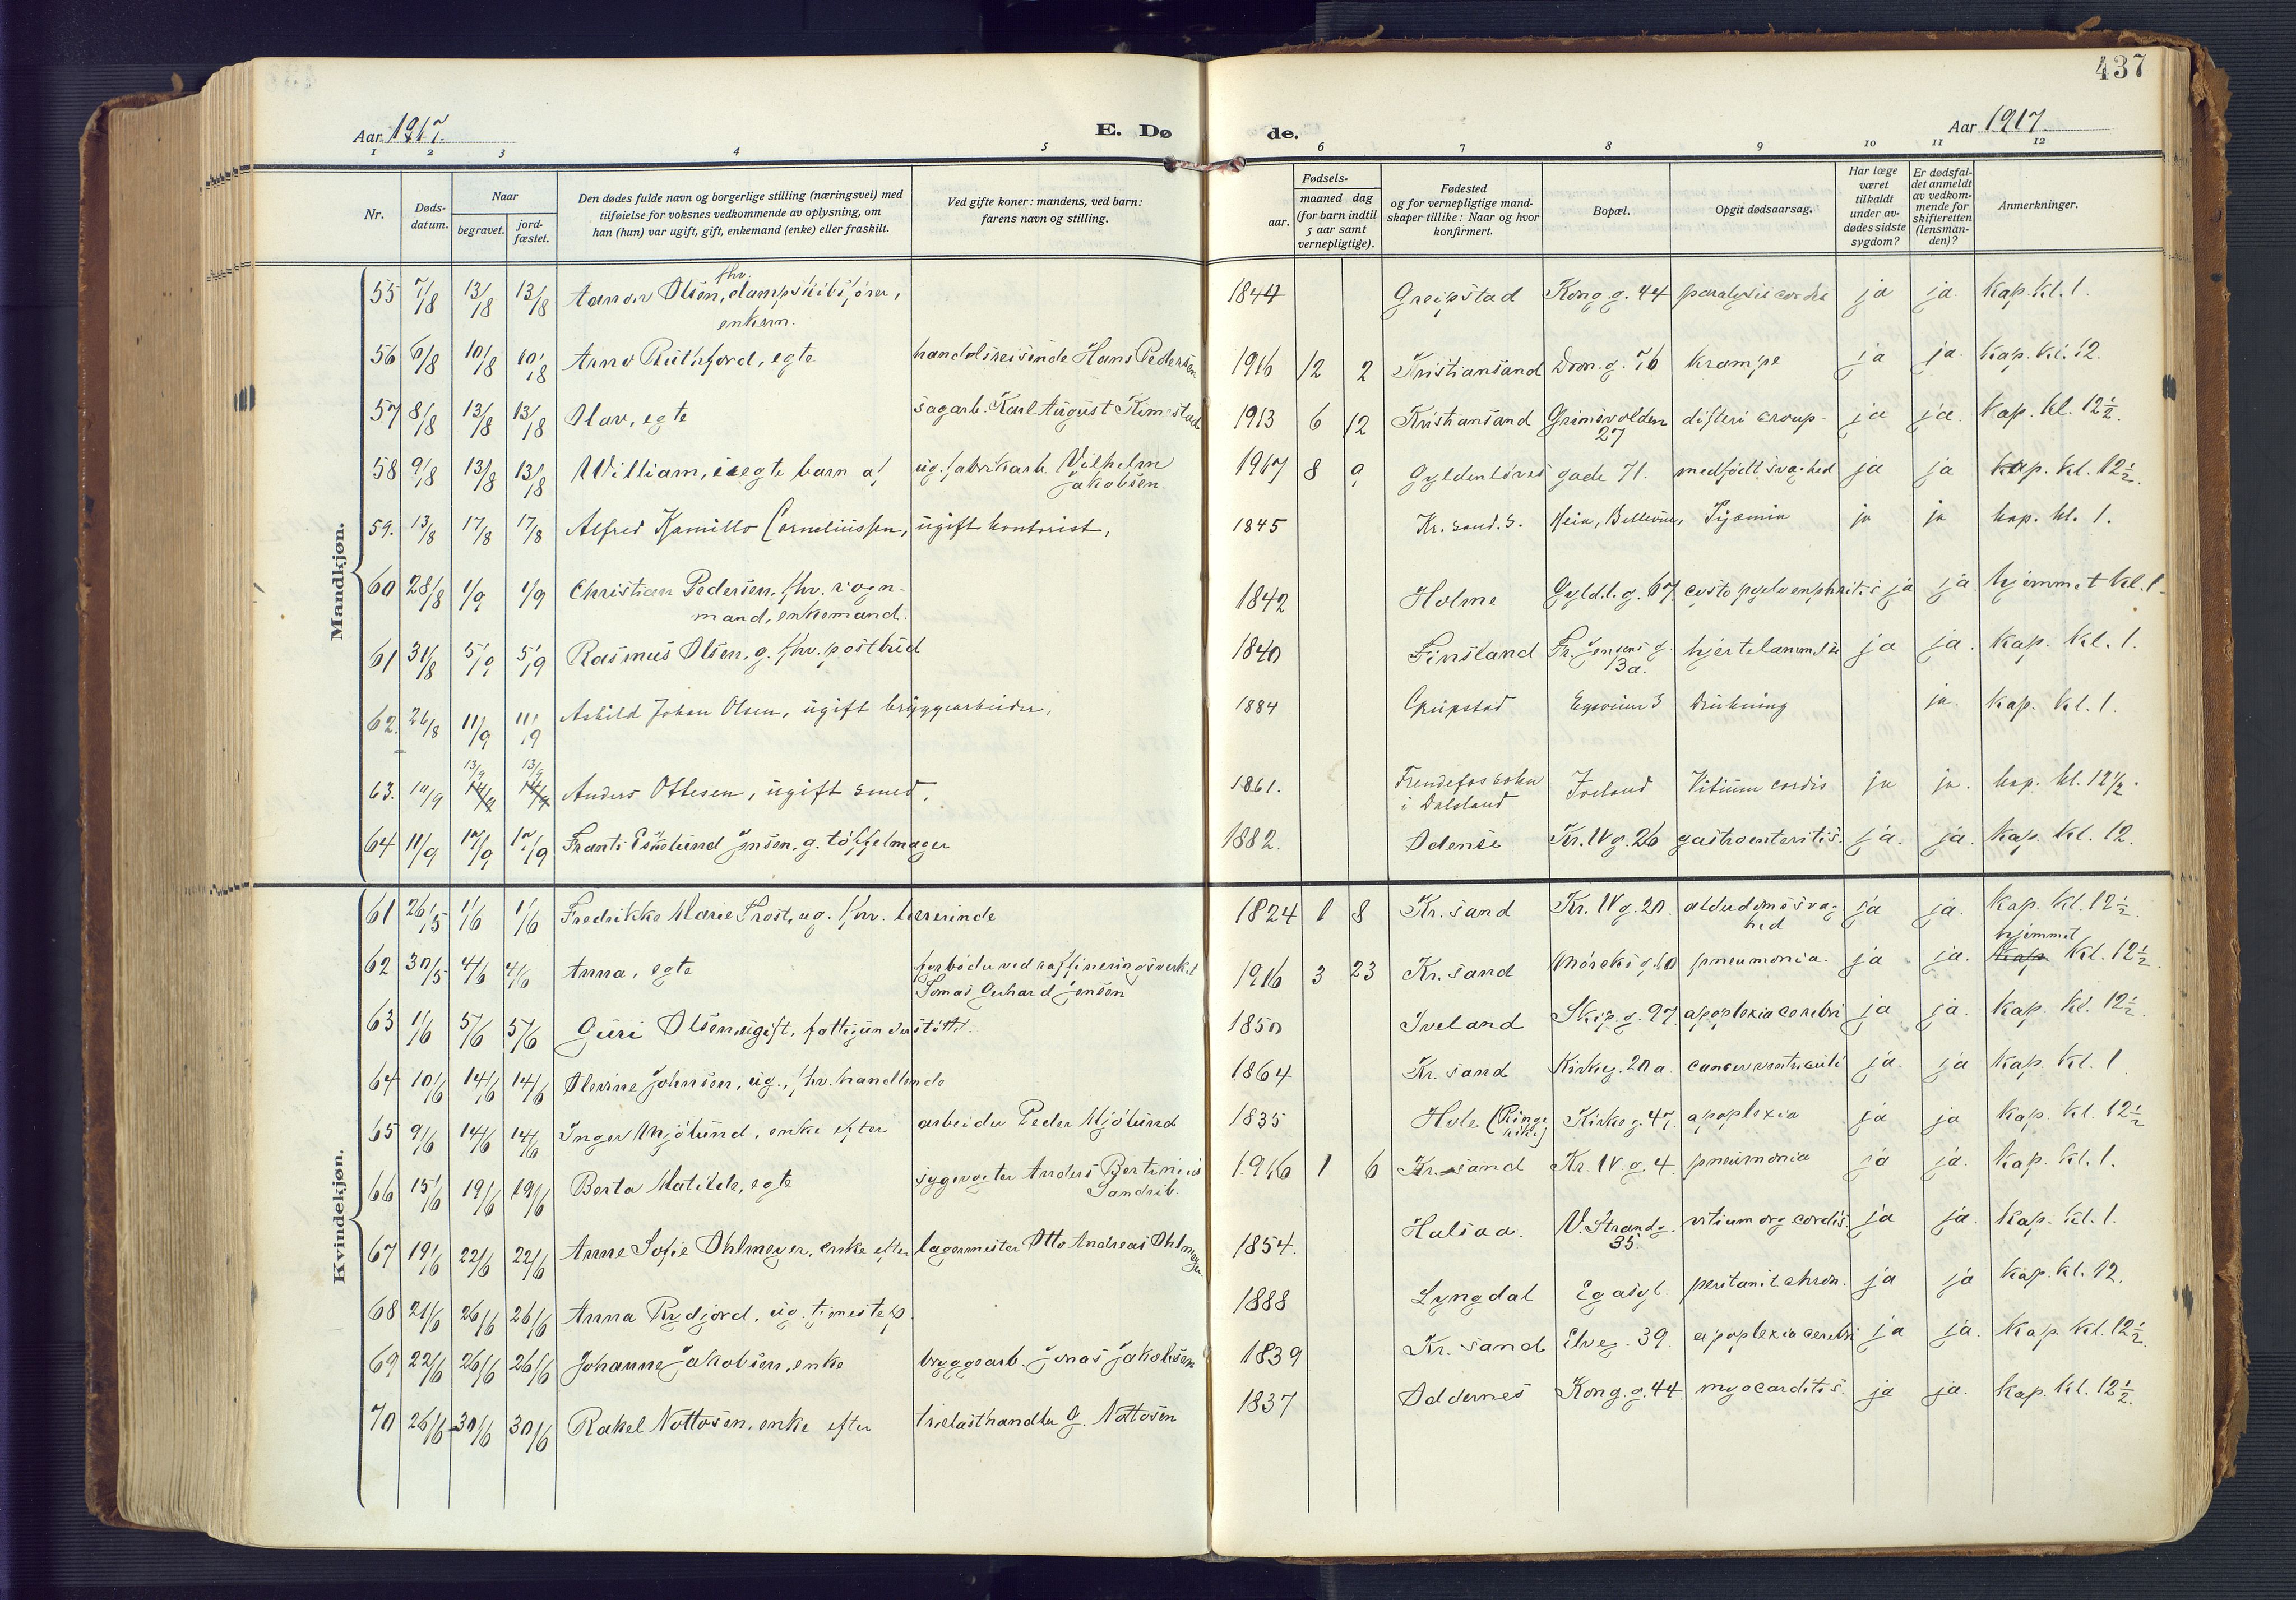 437
Aar 1917.
E. Dø de.
Aar 1917.
1 2 3 4 5 6 7 8 9 10 11 12
Nr.
Døds-
datum.
Naar
begravet.
jord-
fæstet.
Den dødes fulde navn og borgerlige stilling (næringsvei) med
tilføielse for voksnes vedkommende av oplysning, om
han (hun) var ugift, gift, enkemand (enke) eller fraskilt.
Ved gifte koner: mandens, ved barn:
farens navn og stilling.
Fødsels-
aar.
maaned dag
(for barn indtil
5 aar samt
vernepligtige).
Fødested
og for vernepligtige mand-
skaper tillike: Naar og hvor
konfirmert.
Bopæl.
Opgit dødsaarsag.
Har læge
været
tilkaldt
under av-
dødes sidste
sygdom?
Er dødsfal-
det anmeldt
av vedkom-
mende for
skifteretten
(lensman-
den)?
Anmerkninger.
Mandkjøn.
55 7/8 13/8 13/8 Aanon Olsen, fhv. dampskibsfører, 1844 Greipstad Kong.g. 44 paralysis cordis ja ja. Kap. kl. 1.
enkem.
56 6/8 10/8 10/8 Arno Ruthford, egte handelsreisende Hans Pedersen 1916 12 2 Kristiansand Dron.g. 76 krampe ja ja. Kap. kl. 12.
57 8/8 13/8 13/8 Olav, egte sagarb. Karl August Kimestad 1913 6 12 Kristiansand Grimsvolden difteri croup ja ja. Kap. kl. 12½.
27
58 9/8 13/8 13/8 William, uegte barn af ug. fabrikarb. Vilhelm 1917 8 9 Gyldenløves gade 71. medfødt svaghed ja ja Kap. kl. 12½.
Jakobsen.
59. 13/8 17/8 17/8 Alfred Kamillo Corneliussen, ugift kontorist, 1845 Kr.sand. S. Heia, Bellevue, Pyæmia ja ja kap. kl. 1.
60 28/8 1/9 1/9 Christian Pedersen, fhv. vogn- 1842 Holme Gyld.l.g. 67. cysto pyelonephritis ja ja hjemmet kl. 1
mand, enkemand.
61 31/8 5/9 5/9 Rasmus Olsen, g. fhv. postbud 1840 Finsland Fr. Jensens g. hjertelammelse ja ja. Kap. kl. 1.
13a.
62. 26/8 11/9 11/9 Askild Johan Olsen, ugift bryggearbeider, 1884 Greipstad Egsveien 3 Drukning ja. Kap. kl. 1.
13/9 13/9
63. 10/9 14/9 14/9 Anders Ottesen, ugift smed. 1861. Frendefors sokn Iveland Vitium cordis ja ja. kap. kl. 12½.
i Dalsland
64 11/9 17/9 17/9 Frants Eskelund Jensen, g. tøffelmager 1882. Odense Kr. IV g. 26 gastroenteritis. ja. ja. Kap. kl. 12.
Kvindekjøn.
61 26/5 1/6 1/6 Fredrikke Marie Trost, ug. fhv. lærerinde 1824 1 8 Kr.sand Kr. IV g. 20. alderdomssvag- ja ja. Kap. kl. 12½.
hed
62 30/5 4/6 4/6 Anna, egte forbøder ved raffineringsverket 1916 3 23 Kr.sand pneumonia. ja ja. hjemmet Kap. kl. 12½.
Tomas Gerhard Jensen
63 1/6 5/6 5/6 Guri Olsen, ugift, fattigunderstøttet. 1850 Iveland Skip.g. 97. apoplexia cerebri ja ja. Kap. kl. 12½.
64 10/6 14/6 14/6 Olevine Johnsen, ug., fhv. handlende 1864 Kr.sand Kirkeg. 20 a. cancer ventriculi ja. ja Kap. kl. 1
65 9/6 14/6 14/6 Inger Mjølund, enke efter arbeider Peder Mjølund 1835 Hole (Ringe- Kirkeg. 47. apoplexia ja ja Kap. kl. 12½
rike)
66 15/6 19/6 19/6 Berta Matilde, egte sygevogter Anders Bertinius 1916 1 6 Kr.sand Kr. IV. g. 4. pneumonia ja ja. Kap. kl. 1.
Sandrib.
67 19/6 22/6 22/6 Anne Sofie Ohlmeyer, enke efter lagermester Otto Andreas Ohlmeyer. 1854. Halsaa. V. Strandg. vitium org cordis. ja ja. Kap. kl. 1.
35.
68 21/6 26/6 26/6 Anna Rydjord, ug. tjenestep. 1888 Lyngdal Eg asyl. peritonit chron. ja ja Kap. kl. 12.
69 22/6 26/6 26/6 Johanne Jakobsen, enke bryggearb. Jonas Jakobsen 1839 Kr.sand Elveg. 39. apoplexia cerebri ja ja. Kap. kl. 12½.
70 26/6 30/6 30/6 Rakel Nottosen, enke efter trelasthandler G. Nottosen 1837 Oddernes Kong.g. 44. myocarditis. ja ja. Kap. kl. 12½.